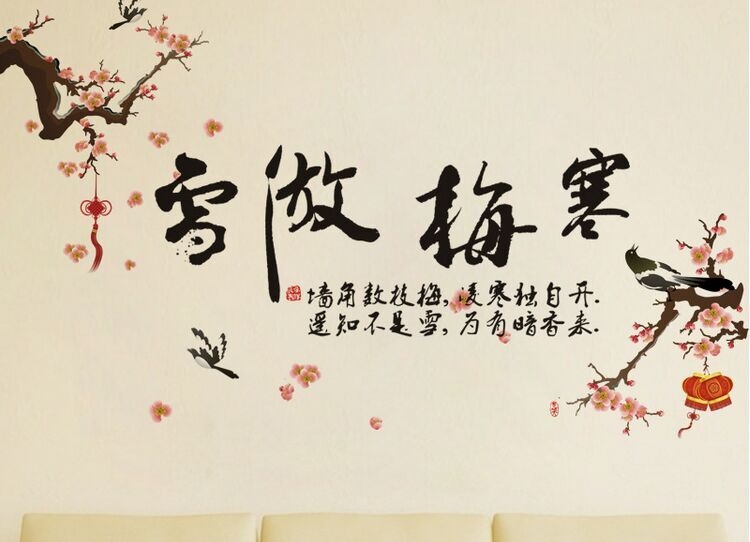 寒梅傲雪
墙角数枝梅,凌寒独自开.
遥知不是雪,为有暗香来.